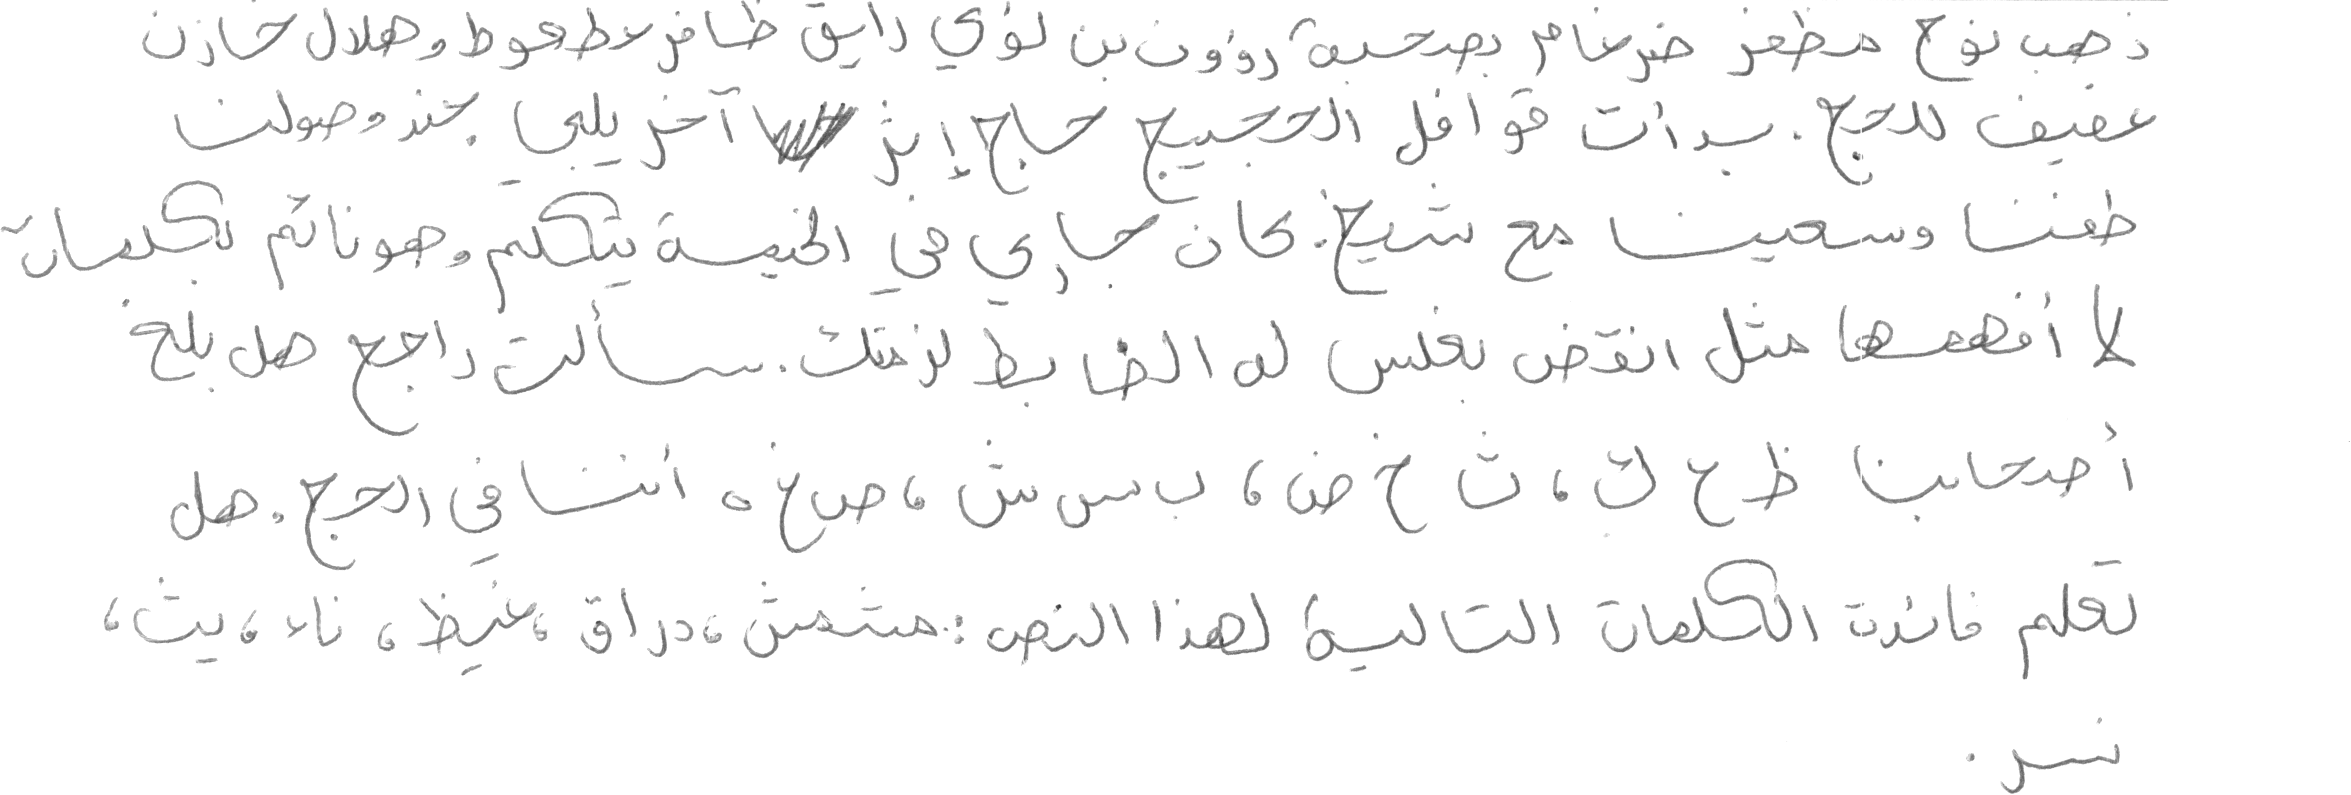 ذهب نوح مظفر ضرغام بصحبة رؤوف بن لؤي رايق ظافر عطعوط وهلال خازن
عفيف للحج. بدأت قوافل الحجيج حاج إثر آخر يلبي. عند وصولنا
طفنا وسعينا مع شيخ. كان جاري في الخيمة يتكلم وهو نائم بكلمات
لا أفهمها مثل انقض بغلس له الضابط لزمتك. سألت راجح هل بلغ
أصحابنا ظ ع ك، ث خ ض، ب س ش، ص غ ه أننا في الحج. هل
تعلم فائدة الكلمات التالية لهذا النص: مشمش، دراق، غيظ، ناء، يث،
نسر.